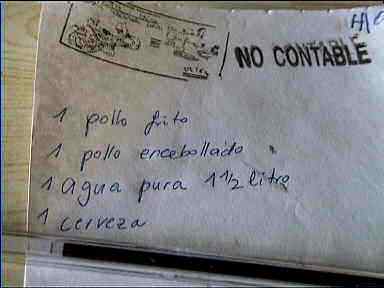 NO CONTABLE
1 pollo frito
1 pollo encebollado
1 agua pura 1 1/2 litro
1 cerveza